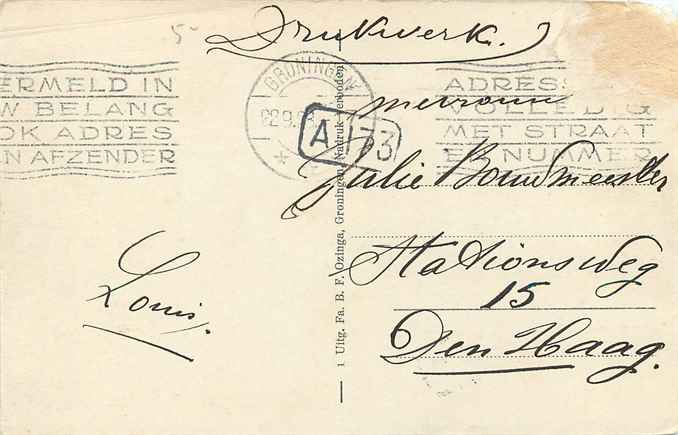 5-
Drukwerk.
GRONINGEN
ERMELD IN
W BELANG
OK ADRES
N AFZENDER
ADRES
VOLLEDIG
MET STRAAT
EN NUMMER
A 133
mevrouw
Julie Bouwmeester
Stationsweg
15
Den Haag.
Louis.
1 Uitg. Fa. B. F. Ozinga, Groningen, Nadruk verboden